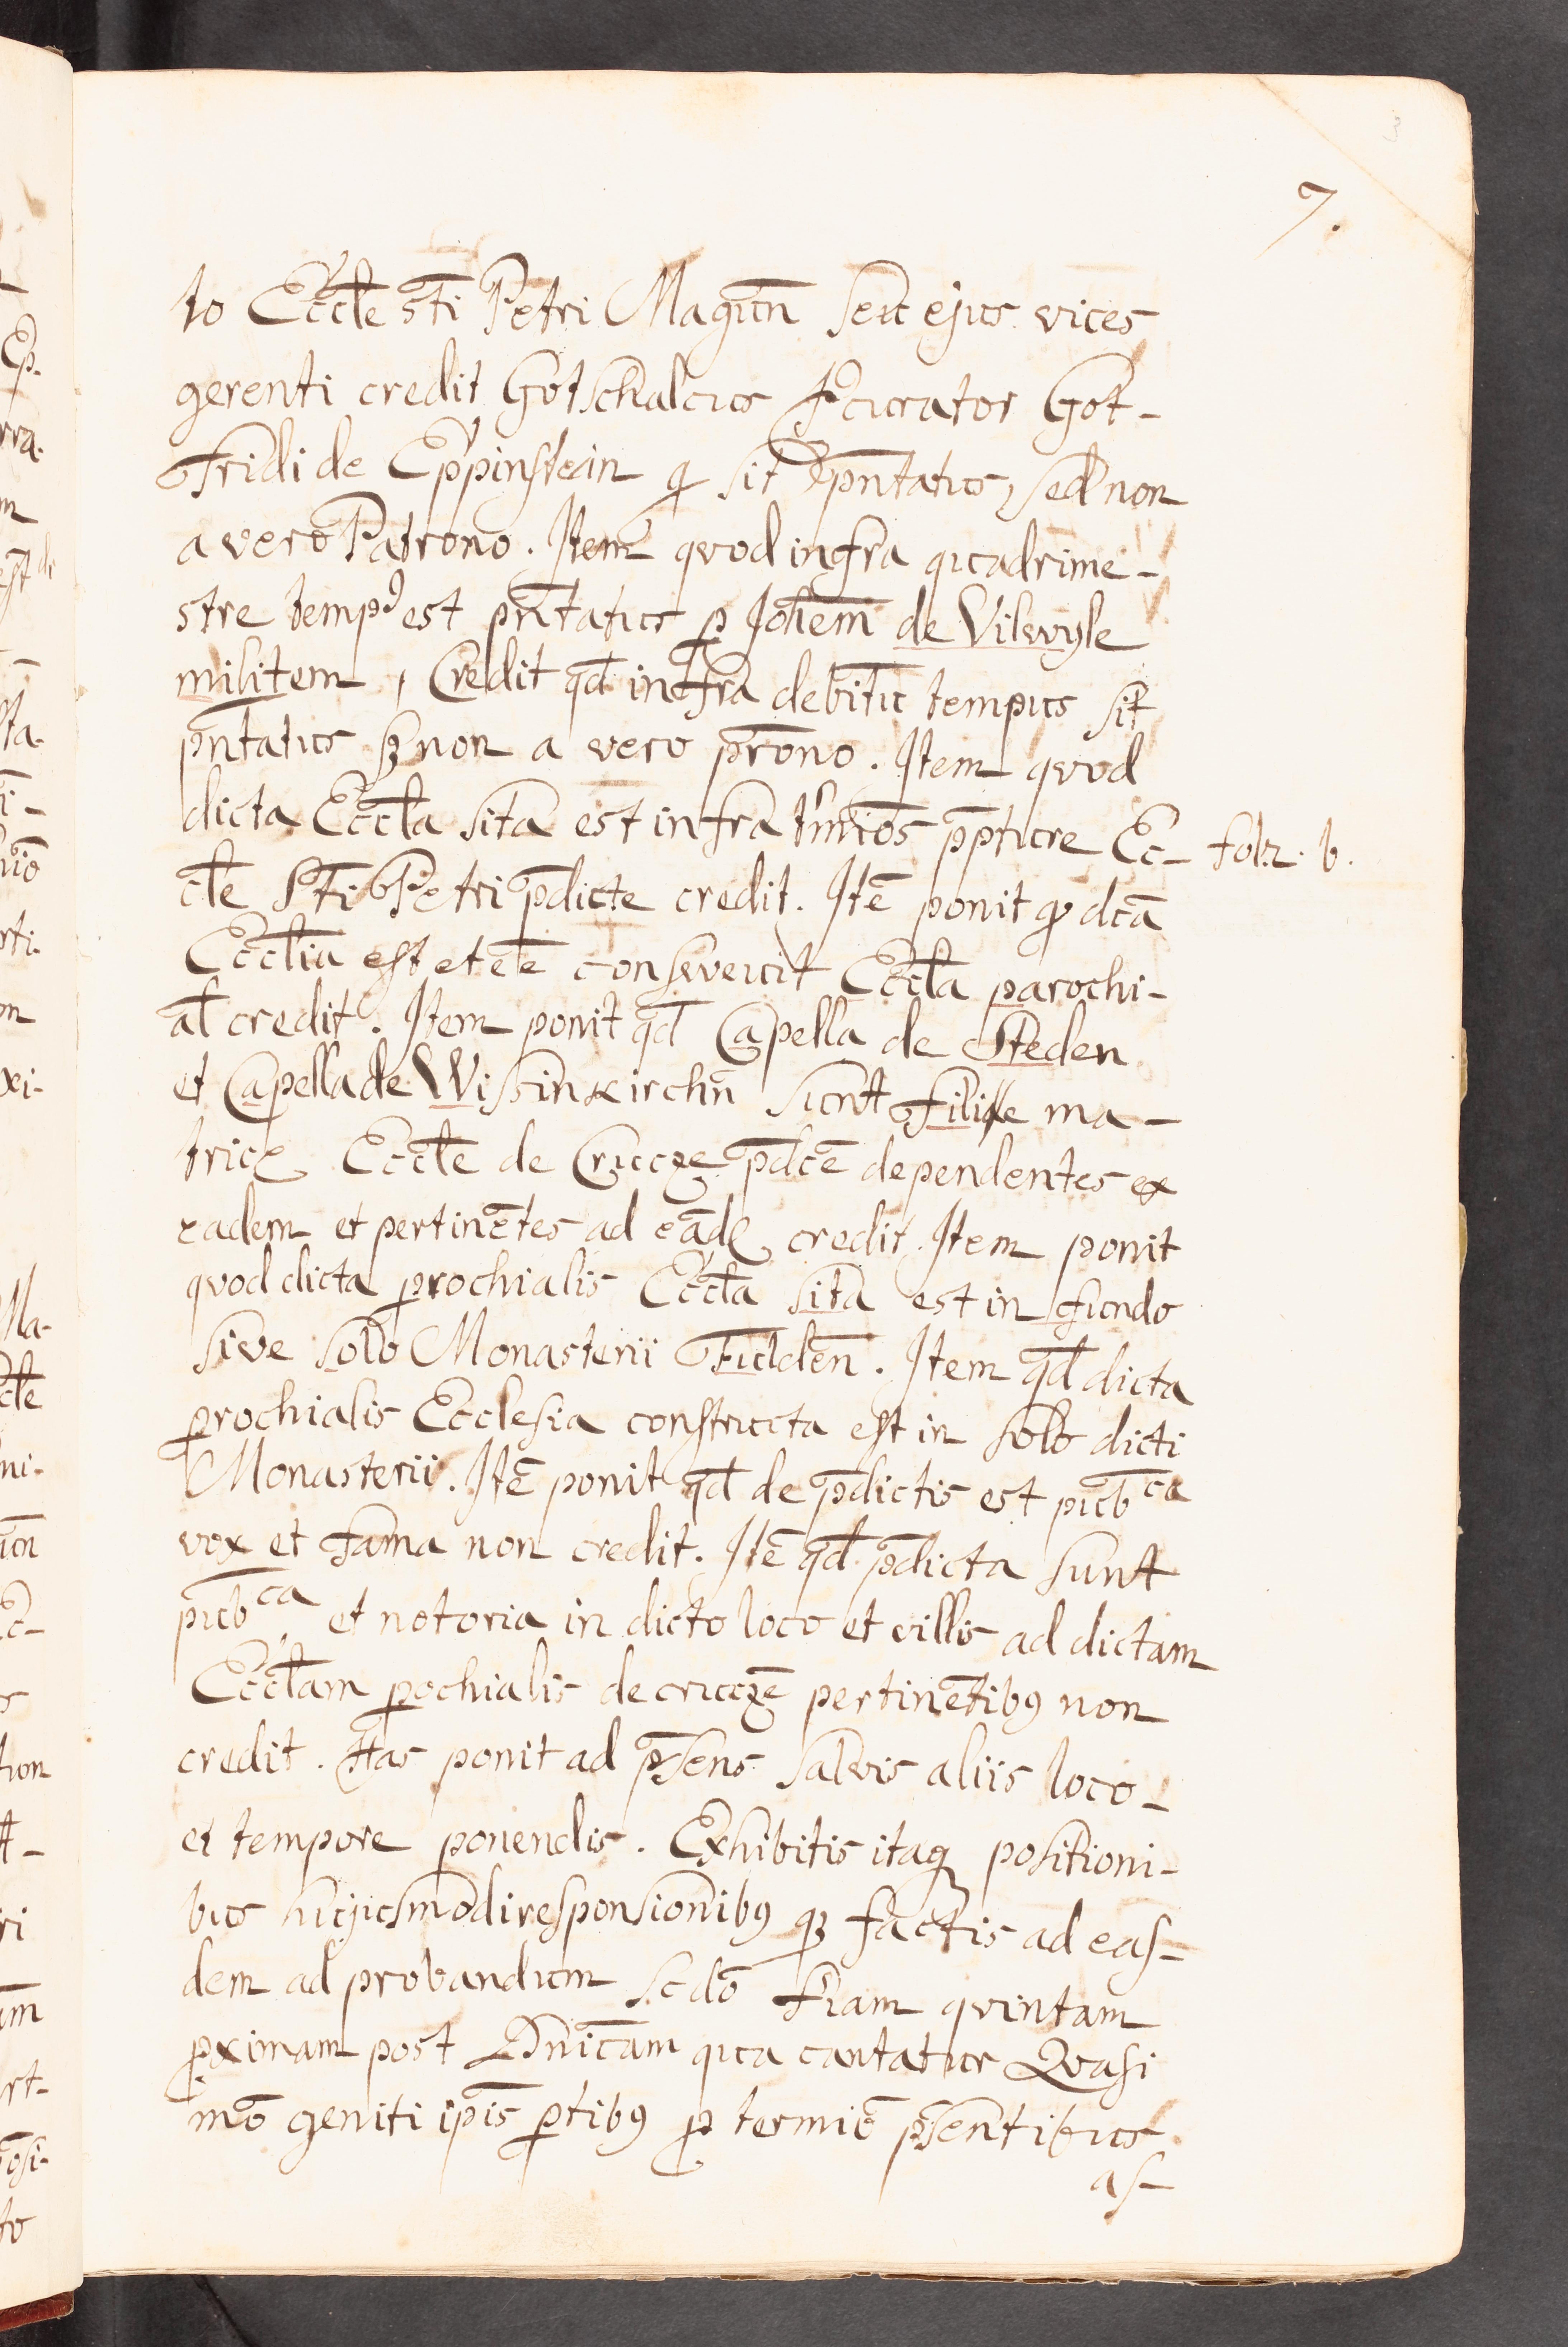 7.
to Eccłe sti Petri Magun̄ seu ejus vices
gerenti credit Gotschalcus Pcurator Got-
fridi de Eppinstein qͥ sit p̄ntatus, sed non
a vero Patrono. Item qvod infra quadrime-
stre temp⁹ est p̄ntatus ꝑ Joh̄em de Vilwyle
militem, Credit qd̄ infra debitū tempus sit
p̄ntatus sꝫ non a vero pr̄ono. Item qvod
dicta Eccła sita est infra tm̄ios p̄pture Ec-
fol. 2. b.
cłe Sti Petri p̄dicte credit. Itē ponit qͩ dc̄a
Eccłia est et eē̄ consveuit Eccła parochi-
al̄ credit. Item ponit qd̄ Capella de Steden
et Capella de Wissinkirchn̄ sunt filiæ ma-
tricę Eccłe de Crucze p̄dcē dependentes ex
eadem et pertinētes ad eādē credit. Item ponit
qvod dicta ꝑrochialis Eccła sita est in fundo
sive solo Monasterii Fulden̄. Item qd̄ dicta
ꝑrochialis Ecclesia constructa est in solo dicti
Monasterii. Itē ponit qd̄ de p̄dictis est pub^ca
vox et fama non credit. Itē qd̄ p̄dicta sunt
pub^ca et notoria in dicto loco et villis ad dictam
Eccłam ꝑochialis de cruczē pertinētib⁹ non
credit. Has ponit ad p̄sens salvis aliis loco-
et tempore ponendis. Exhibitis itaqꝫ positioni-
bus hujusmodi responsionib⁹ qꝫ factis ad eas-
dem ad probandum scdō fr̄iam qvintam
ꝓximam post Dn̄icam qua cantatur Qvasi
mō geniti ip̄is ꝑtib⁹ ꝓ termiō p̄sentibus
as-